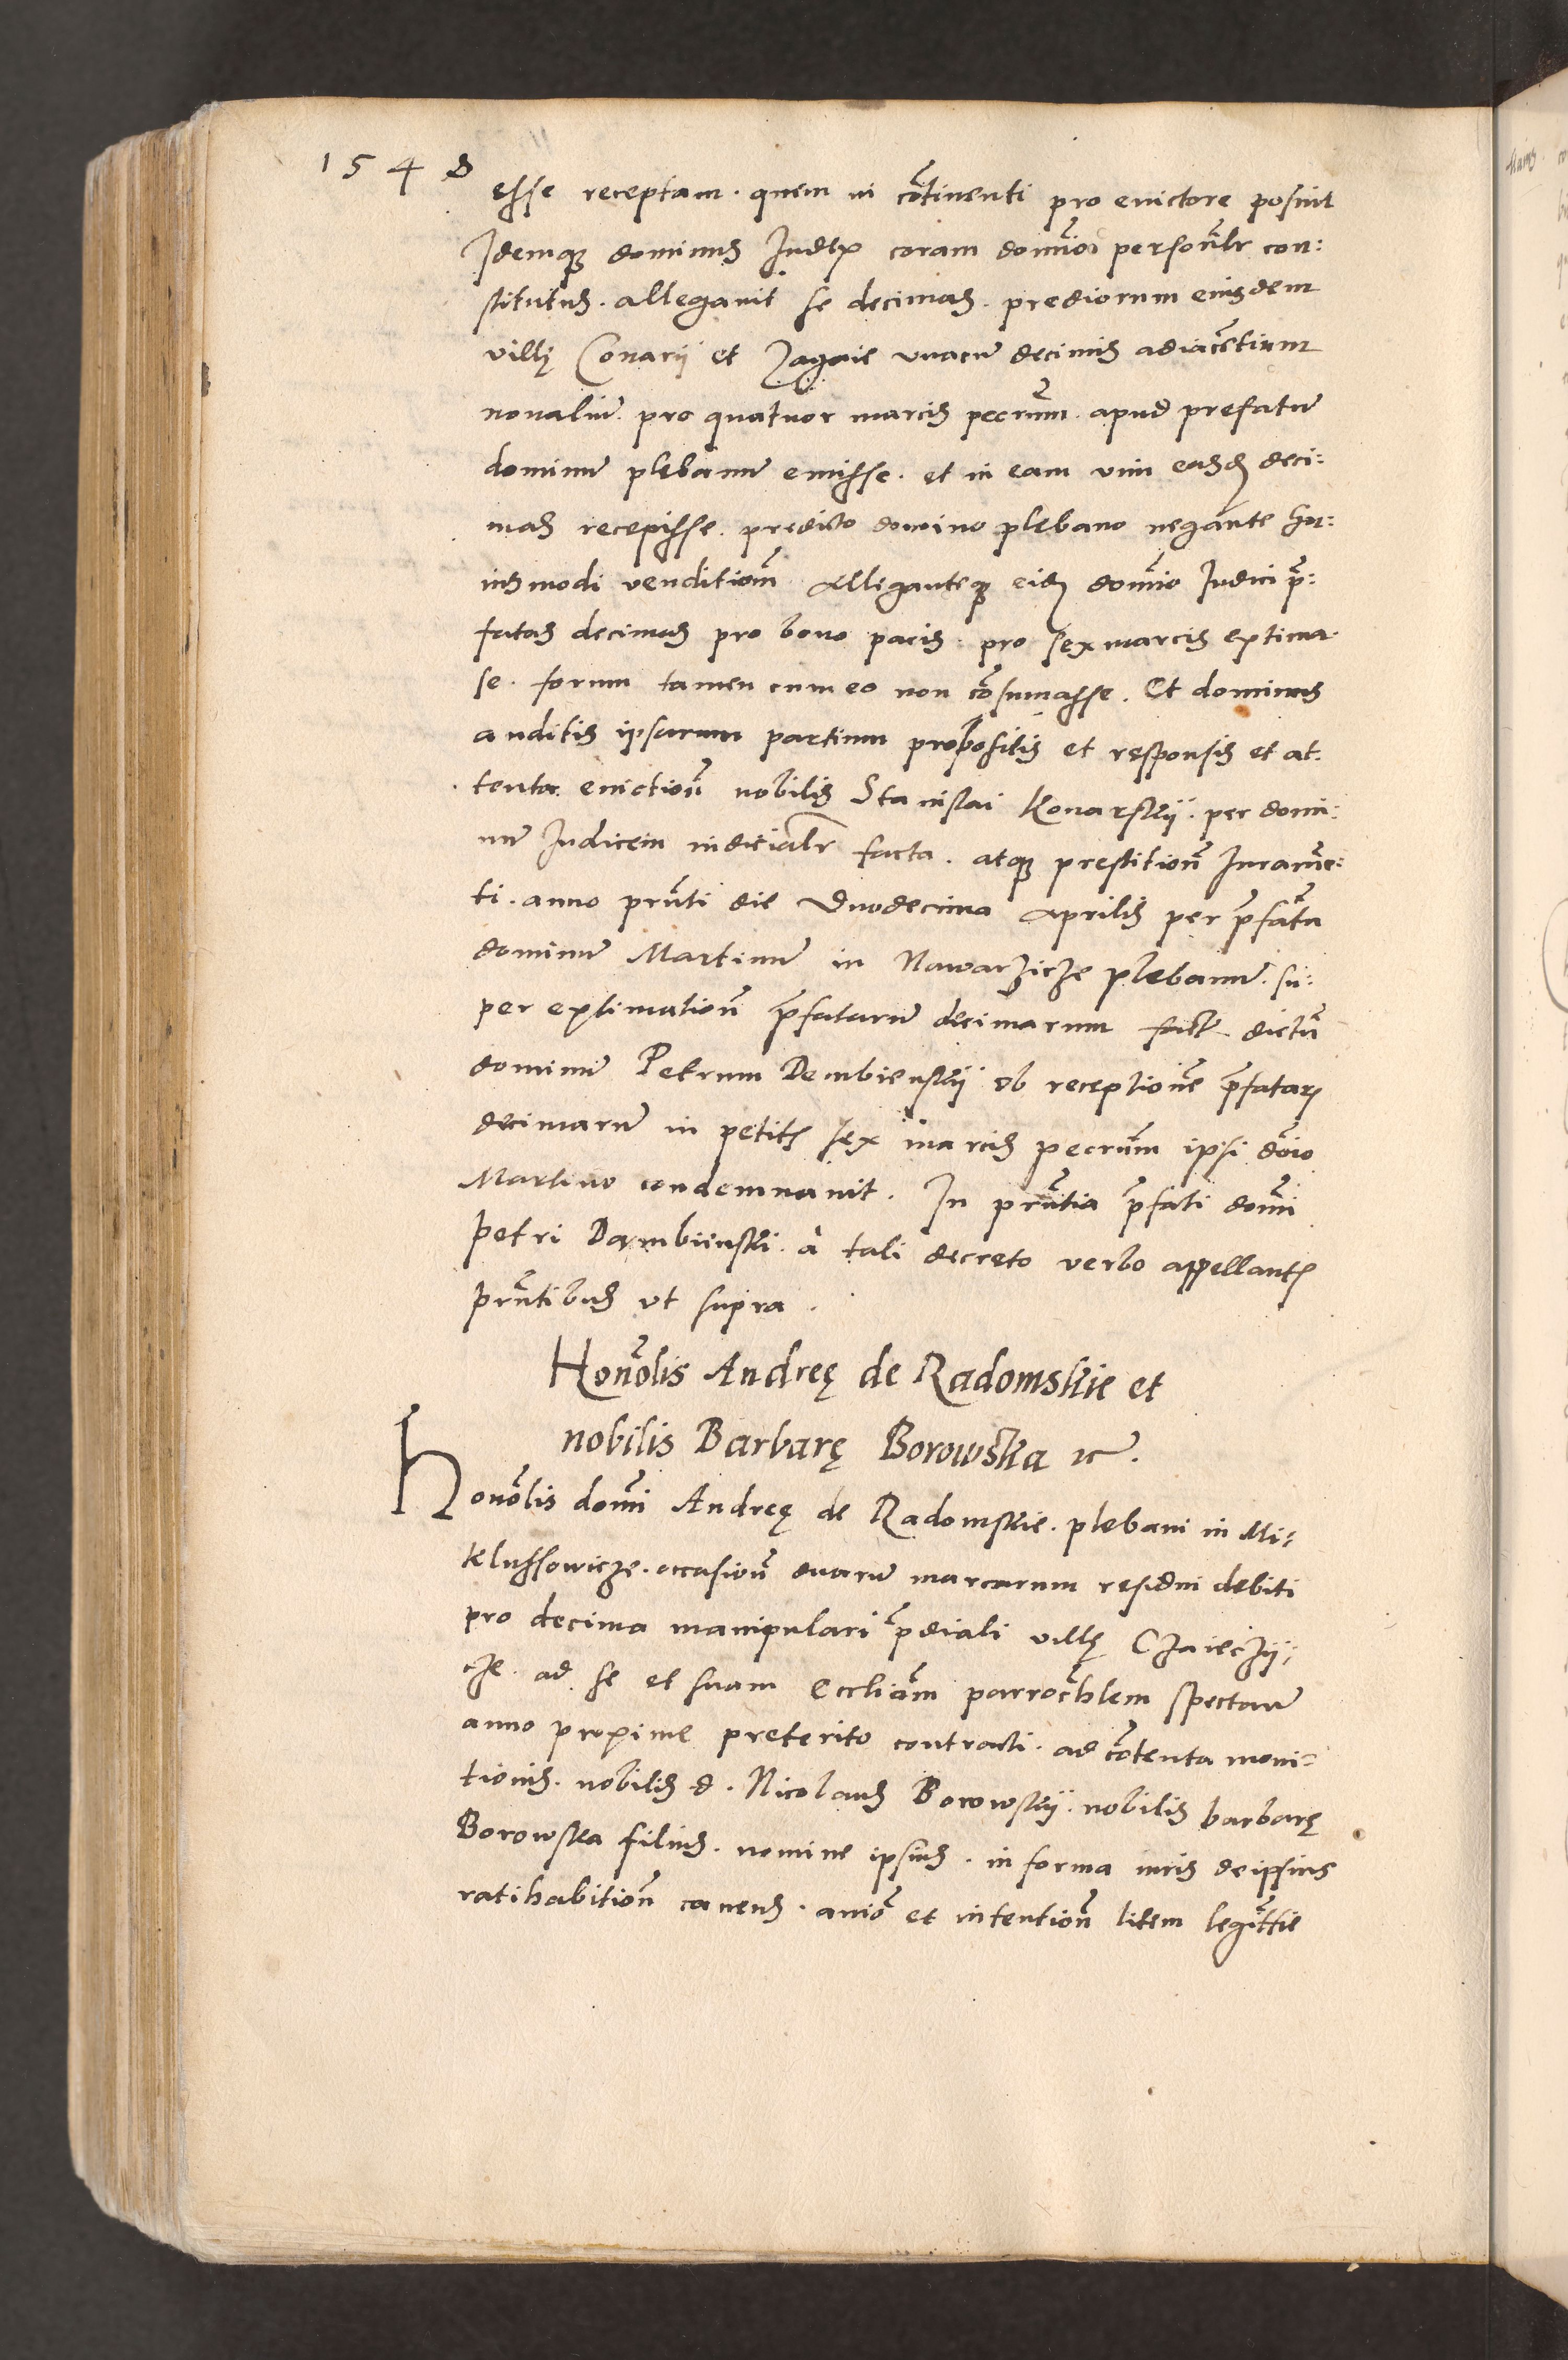 1548
esse receptam. quem in cõtinenti pro evictore posuit
Idemq3 dominus Iudex coram domĩo personãlr con:
stitutus. allegavit se decimas. prediorum eiusdem
villę Conarÿ et Zagaie vnacũ decimis adiacẽtium
novaliũ. pro quatuor marcis pecũm. apud prefatũ
dominũ plebanũ emisse. et in eam vim easdẽ deci:
mas recepisse. predicto domino plebano negante hu:
iusmodi venditionẽ allegantẽq3 eidẽ domĩo Iudici p̃:
fatas decimas pro bono pacis. pro sex marcis extima.
se. forum tamen cum eo non cõsumasse. Et dominus
auditis ipsarum partium propositis et responsis et at:
tenta evictionẽ nobilis Stanislai Konarskÿ. per domi:
nũ Iudicem iudicialr facta. atq3 prestitionẽ Iuramẽ:
ti. anno prñti die duodecima Aprilis per p̃fatũ
dominũ Martinũ in Nawarzicze plebanũ. su:
per extimationẽ p̃fatarũ decimarum fact. dictũ
dominũ Petrum Dembienskÿ ob receptionẽ p̃fatarũ
decimarũ in petitis sex marcis pecũm ipsi dõio
Martino condemnavit. In prñtia p̃fati domĩ
Petri Dambiinski. à tali decreto verbo appellantis
prñtibus vt supra.
Honõlis Andreę de Radomskie et
nobilis Barbarę Borowska &c.
Honõlis domĩ Andreę de Radomskie. plebani in Mi:
klussowicze. occasionẽ duarũ marcarum residui debiti
pro decima manipulari p̃diali villę Czaieczÿ:
cze. ad se et suam Eccliãm parrochlem spectan̄
anno proxime preterito contracti. ad cõtenta moni:
tionis. nobilis d. Nicolaus Borowskÿ. nobilis barbarę
Borowska filius. nomine ipsius. in forma iuris de ipsius
ratihabitionẽ cavens. aniõ et intentionẽ litem legittĩe